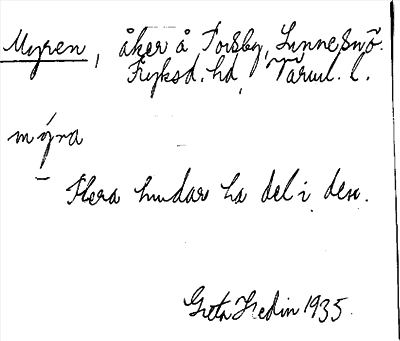 Myren, åker å Torsby, Lunnesnö.
Fryksd. hd, Värml. l.
mýra
Flera bönder ha del i den.
Greta Hedin 1935.